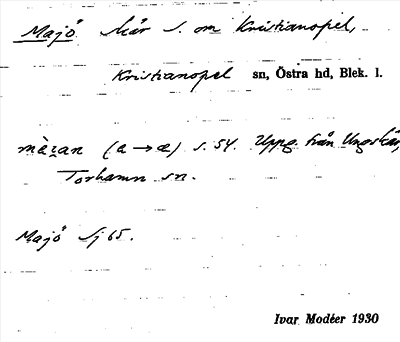 Majö skär S. om Kristianopel,
Kristianopel sn, Östra hd, Blek. l.
mæ̀ɀan (a → æ) s. 54. Uppg. från Ungskär,
Torhamn sn.
Majö Sj 65.
Ivar Modéer 1930